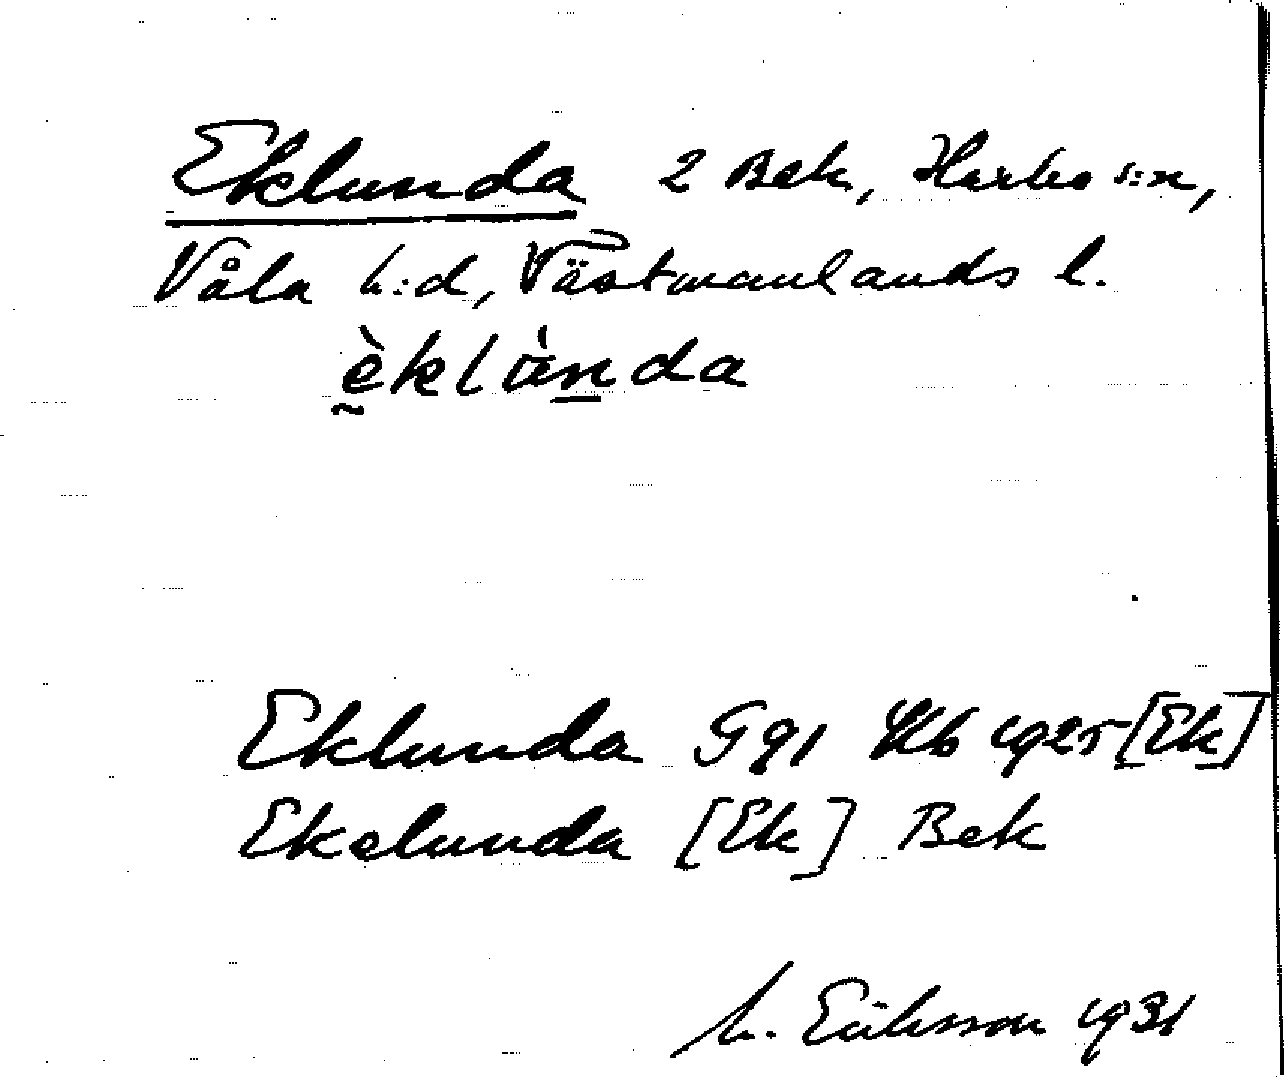 Eklunda 2 Bek, Harbo s:n,
Våla h:d, Västmanlands l.
èklùnda
Eklunda Gg1 Hb 1925 [Ek]
Ekelunda [Ek] Bek
M. Eriksson 1931